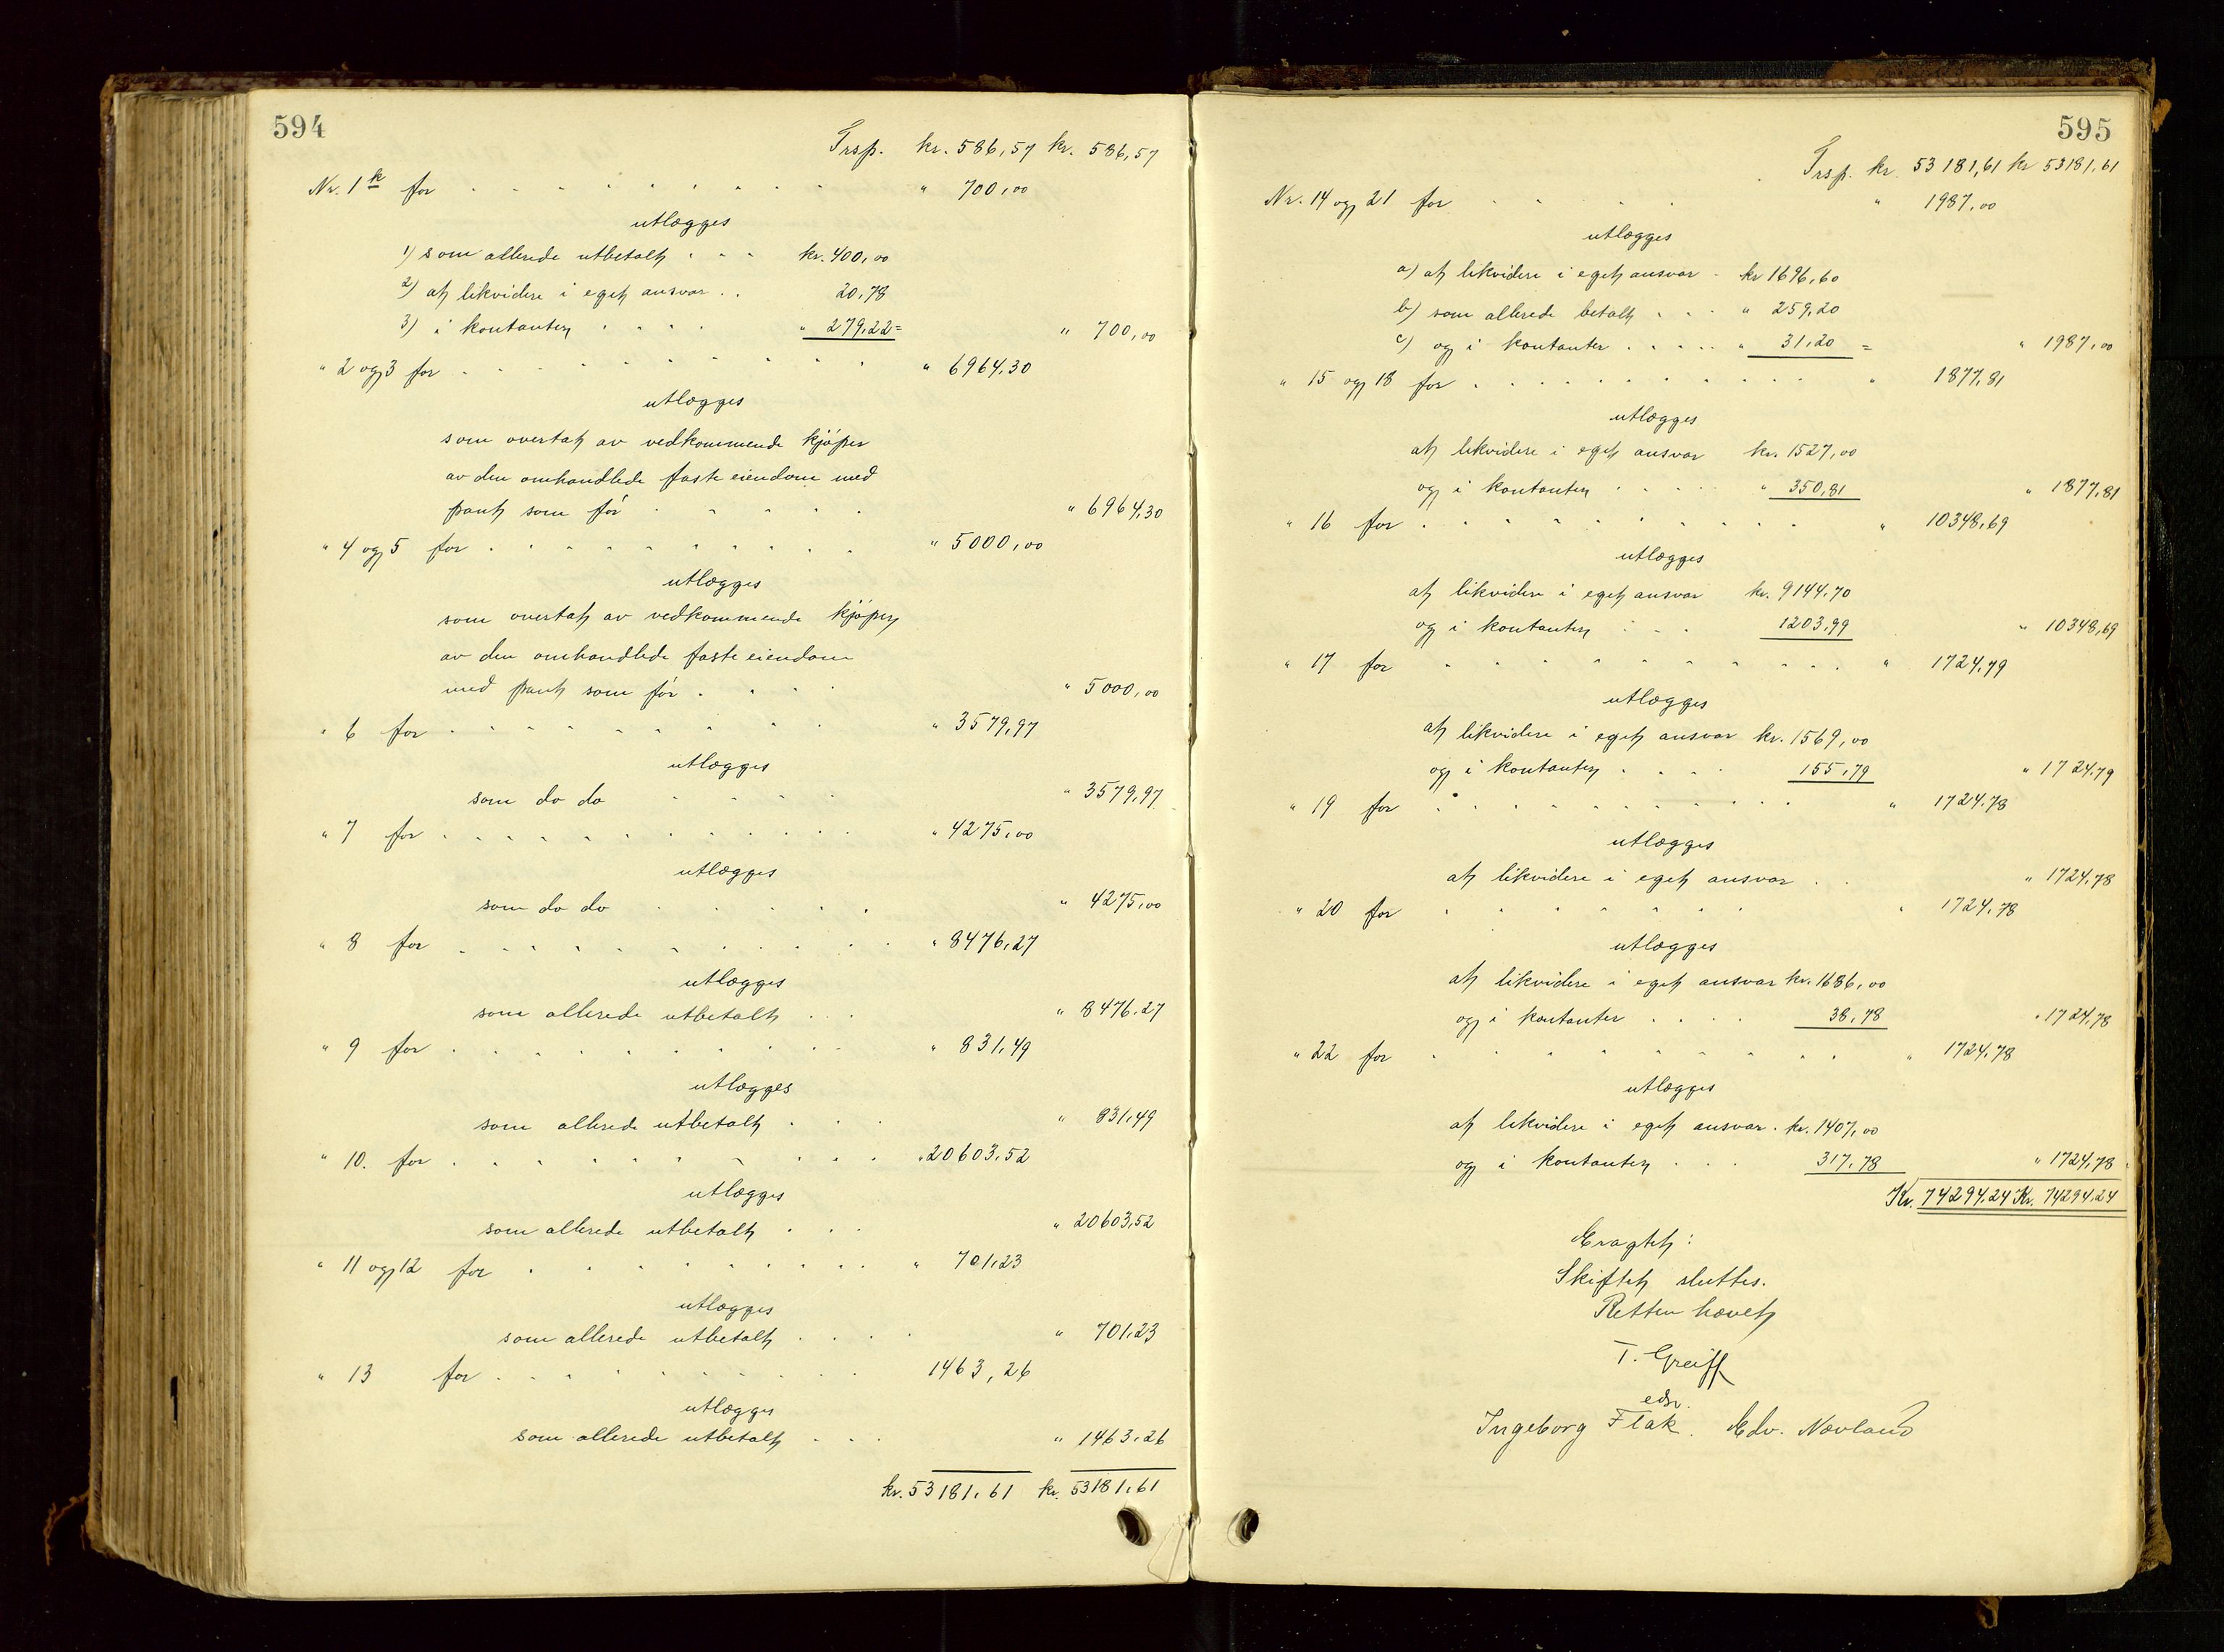 594
Trsp. kr. 586,57 kr. 586,57
Nr. 1 k for . . . . . . . . . " 700,00
utlægges
1) som allerede utbetalt . . . kr. 400,00
2) at likvidere i eget ansvar . . 20,78
3) i kontanter . . . . " 279,22 = " 700,00
" 2 og 3 for . . . . . . . . . " 6964,30
utlægges
som overtat av vedkommende kjøper
av den omhandlede faste eiendom med
pant som før . . . . . " 6964,30
" 4 og 5 for . . . . . . . . . " 5000,00
utlægges
som overtat av vedkommende kjøper
av den omhandlede faste eiendom
med pant som før . . . . " 5000,00
" 6 for . . . . . . . . . " 3579,97
utlægges
som do do . . . . " 3579,97
" 7 for . . . . . . . . . . " 4275,00
utlægges
som do do . . . . . " 4275,00
" 8 for . . . . . . . . . . " 8476,27
utlægges
som allerede utbetalt . . . " 8476,27
" 9 for . . . . . . . . . " 831,49
utlægges
som allerede utbetalt . . . " 831,49
" 10. for . . . . . . . . . . " 20603,52
utlægges
som allerede utbetalt . . . " 20603,52
" 11 og 12 for . . . . . . . . " 701,23
utlægges
som allerede utbetalt . . . . " 701,23
" 13 for . . . . . . . . . 1463,26
utlægges
som allerede utbetalt . . . " 1463,26
kr. 53181,61 kr. 53181,61
595
Trsp. kr. 53181,61 kr 53181,61
Nr. 14 og 21 for . . . . . " 1987,00
utlægges
a) at likvidere i eget ansvar . kr 1696,60
b) som allerede betalt . . . " 259,20
c) og i kontanter . . . . . " 31,20 = " 1987,00
" 15 og 18 for . . . . . . . . . " 1877,81
utlægges
at likvidere i eget ansvar kr. 1527,00
og i kontanter . . . . " 350,81 " 1877,81
" 16 for . . . . . . . . . " 10348,69
utlægges
at likvidere i eget ansvar kr. 9144,70
og i kontanter . . . 1203,99 " 10348,69
" 17 for . . . . . . . . . . " 1724,79
utlægges
at likvidere i eget ansvar kr. 1569,00
og i kontanter . . . . 155,79 " 1724,79
" 19 for . . . . . . . . . " 1724,78
utlægges
at likvidere i eget ansvar . . " 1724,78
" 20 for . . . . . . . " 1724,78
utlægges
at likvidere i eget ansvar kr. 1686,00
og i kontanter . . . . 38,78 " 1724,78
" 22 for . . . . . . . . . " 1724,78
utlægges
at likvidere i eget ansvar . kr. 1407,00
og i kontanter . . . 317,78 " 1724,78
Kr. 74294,24 Kr. 74294,24
Eragtet:
Skiftet sluttes.
Retten hævet
T. Greiff
edsv.
Ingeborg Flak. Edv. Nævland